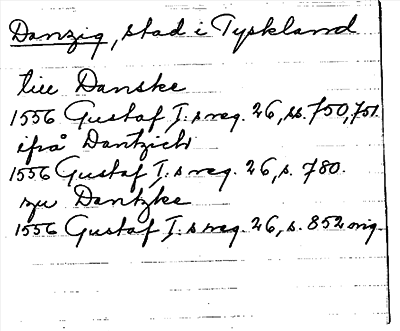 Danzig, stad i Tyskland
till Danske
1556 Gustaf I:s reg. 26, ss. 750, 751.
ifrå Dantzich
1556 Gustaf I:s reg. 26, s. 780.
zu Dantzke
1556 Gustaf I:s reg. 26, s. 852 orig.